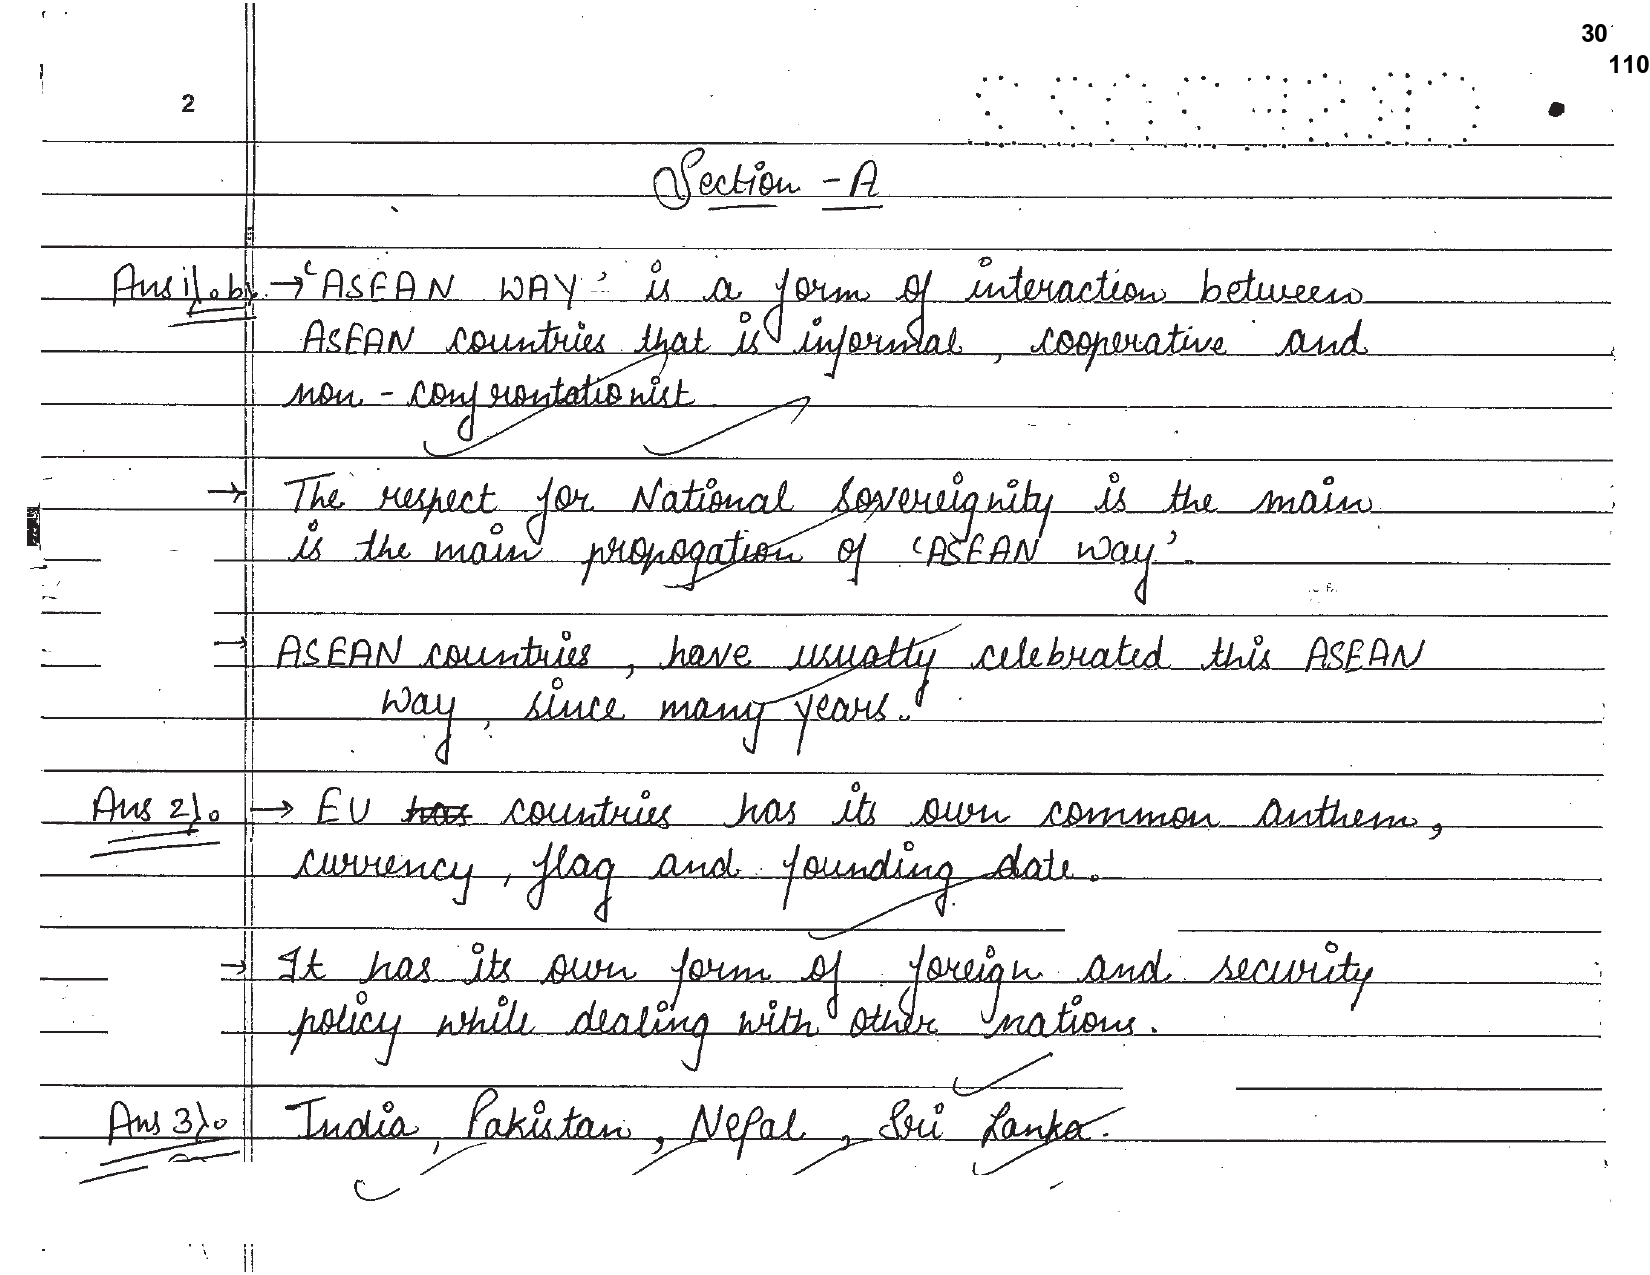 30
110
2
Section - A
Ans 1). b). → 'ASEAN WAY' is a form of interaction between
ASEAN countries that is informal, cooperative and
non - confrontationist
→ The respect for National Sovereignity is the main
is the main propogation of 'ASEAN Way'.
→ ASEAN countries, have usually celebrated this ASEAN
Way, since many years.
Ans 2). → EU has countries has its own common anthem,
currency, flag and founding date.
→ It has its own form of foreign and security
policy while dealing with other nations.
Ans 3). India, Pakistan, Nepal, Sri Lanka.